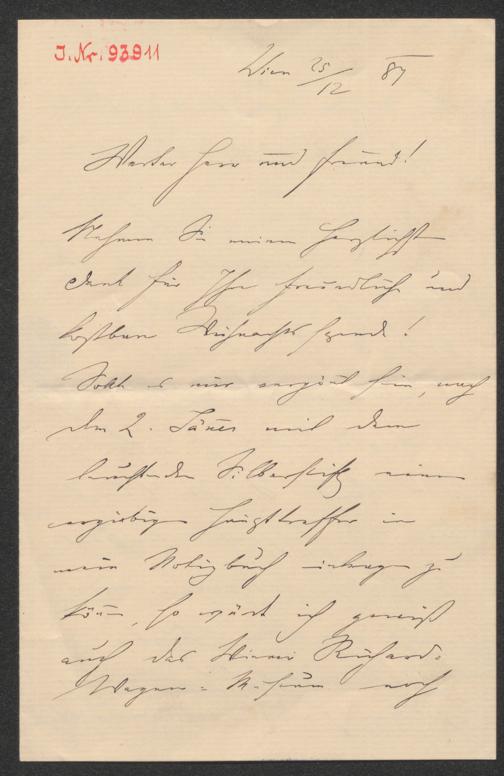 J. Nr. 93911
Wien 25/12 87
Werter Herr und Freund!
Nehmen Sie meinen herzlichsten
Dank für Ihre freundliche und
kostbare Weihnachtsspende!
Sollte es mir vergönnt sein, nach
dem 2. Jänner mit dem
Silberstift einen
ergiebigen Haupttreffer in
mein Notizbuch eintragen zu
können, so würde ich gewiß
auch das Wiener Richard-
Wagner-Museum noch